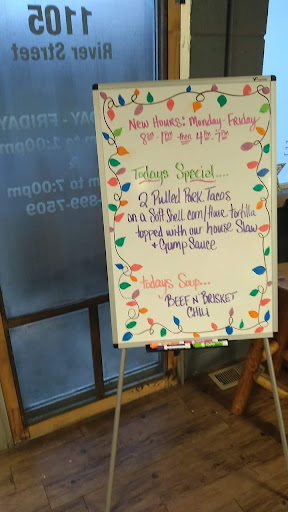 1105
River Street
DAY - FRIDAY
to 1:00pm
&
m to 7:00pm
-899-7509
New Hours: Monday-Friday
8:00-1:00 then 4:00-7:00
Todays Special....
2 Pulled Pork Tacos
on a Soft Shell corn/flour tortilla
topped with our house Slaw
+ Gump Sauce
Todays Soup...
BEEF N BRISKET
CHILI